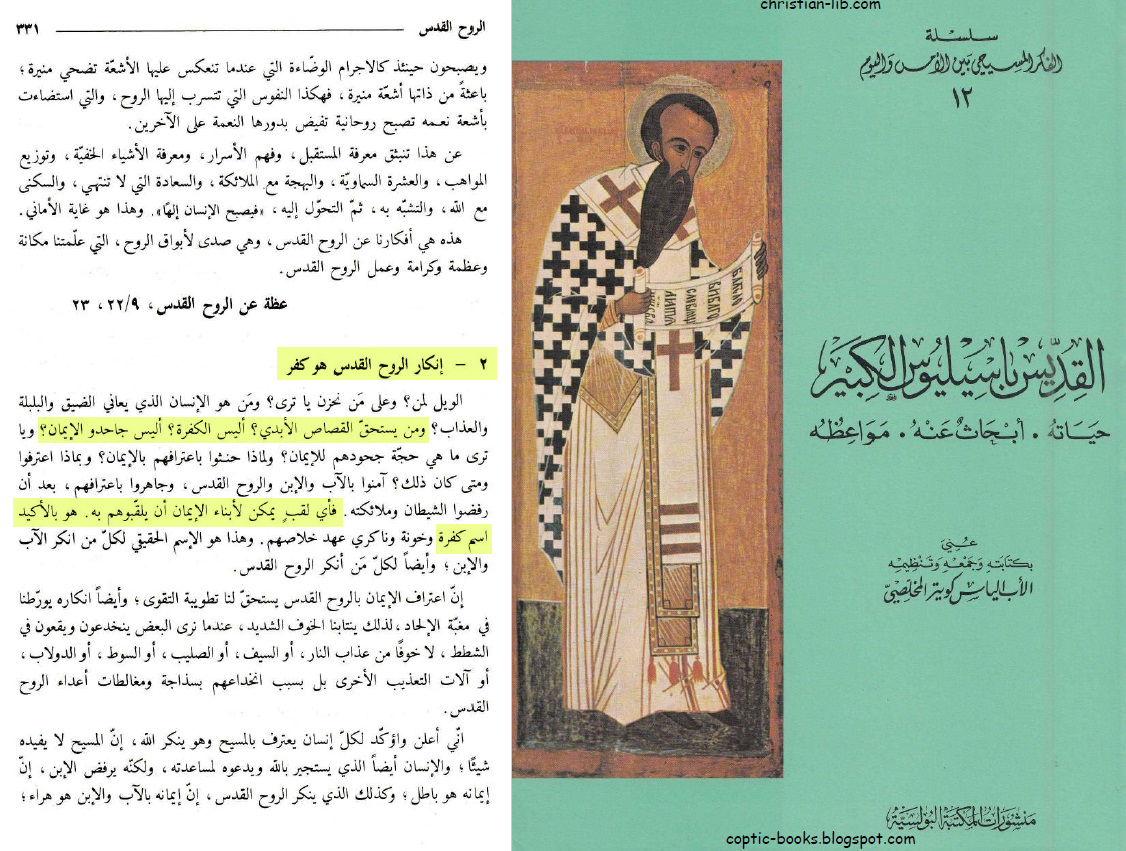 الروح القدس ٣٣١
ويصبحون حينئذ كالاجرام الوضّاءة التي عندما تنعكس عليها الأشعّة تضحي منيرة ؛
باعثةً من ذاتها أشعّة منيرة ، فهكذا النفوس التي تتسرب إليها الروح ، والتي استضاءت
بأشعة نعمه تصبح روحانية تفيض بدورها النعمة على الآخرين .
عن هذا تنبثق معرفة المستقبل ، وفهم الأسرار ، ومعرفة الأشياء الخفيّة ، وتوزيع
المواهب ، والعشرة السماويّة ، والبهجة مع الملائكة ، والسعادة التي لا تنتهي ، والسكنى
مع الله ، والتشبّه به ، ثمّ التحوّل إليه ، «فيصبح الإنسان إلهًا». وهذا هو غاية الأماني .
هذه هي أفكارنا عن الروح القدس ، وهي صدى لأبواق الروح ، التي علّمتنا مكانة
وعظمة وكرامة وعمل الروح القدس .
عظة عن الروح القدس ، ٢٢/٩ ، ٢٣
٢ – إنكار الروح القدس هو كفر
الويل لمن؟ وعلى مَن نحزن يا ترى؟ ومَن هو الإنسان الذي يعاني الضيق والبلبلة
والعذاب؟ ومن يستحقّ القصاص الأبدي؟ أليس الكفرة؟ أليس جاحدو الإيمان؟ ويا
ترى ما هي حجّة جحودهم للإيمان؟ ولماذا حنثوا باعترافهم بالإيمان؟ وبماذا اعترفوا
ومتى كان ذلك؟ آمنوا بالآب والإبن والروح القدس ، وجاهروا باعترافهم ، بعد أن
رفضوا الشيطان وملائكته . فأي لقبٍ يمكن لأبناء الإيمان أن يلقّبوهم به . هو بالأكيد
اسم كفرة وخونة وناكري عهد خلاصهم . وهذا هو الإسم الحقيقي لكلّ من انكر الآب
والإبن ؛ وأيضاً لكلّ مَن أنكر الروح القدس .
إنّ اعتراف الإيمان بالروح القدس يستحقّ لنا تطويبة التقوى ؛ وأيضاً انكاره يورّطنا
في مغبّة الإلحاد ، لذلك ينتابنا الخوف الشديد ، عندما نرى البعض ينخدعون ويقعون في
الشطط ، لا خوفًا من عذاب النار ، أو السيف ، أو الصليب ، أو السوط ، أو الدولاب ،
أو آلات التعذيب الأخرى بل بسبب انخداعهم بسذاجة ومغالطات أعداء الروح
القدس .
انّي أعلن واؤكّد لكلّ إنسان يعترف بالمسيح وهو ينكر الله ، إنّ المسيح لا يفيده
شيئًا ؛ والإنسان أيضاً الذي يستجير بالله ويدعوه لمساعدته ، ولكنّه يرفض الإبن ، إنّ
إيمانه هو باطل ؛ وكذلك الذي ينكر الروح القدس ، إنّ إيمانه بالآب والإبن هو هراء ؛
christian-lib.com
سلسلة
الفكر المسيحي بين الأمس واليوم
١٢
القدّيس باسيليوس الكبير
حيَاتهُ . أبحَاثٌ عَنهُ . مَوَاعِظُهُ
عُنيَ
بكتَابَتِهِ وَجَمْعِهِ وَتَنْظِيمِهِ
الأب الياس كويتر المخلصيّ
منشورات المكتبة البولسيّة
coptic-books.blogspot.com